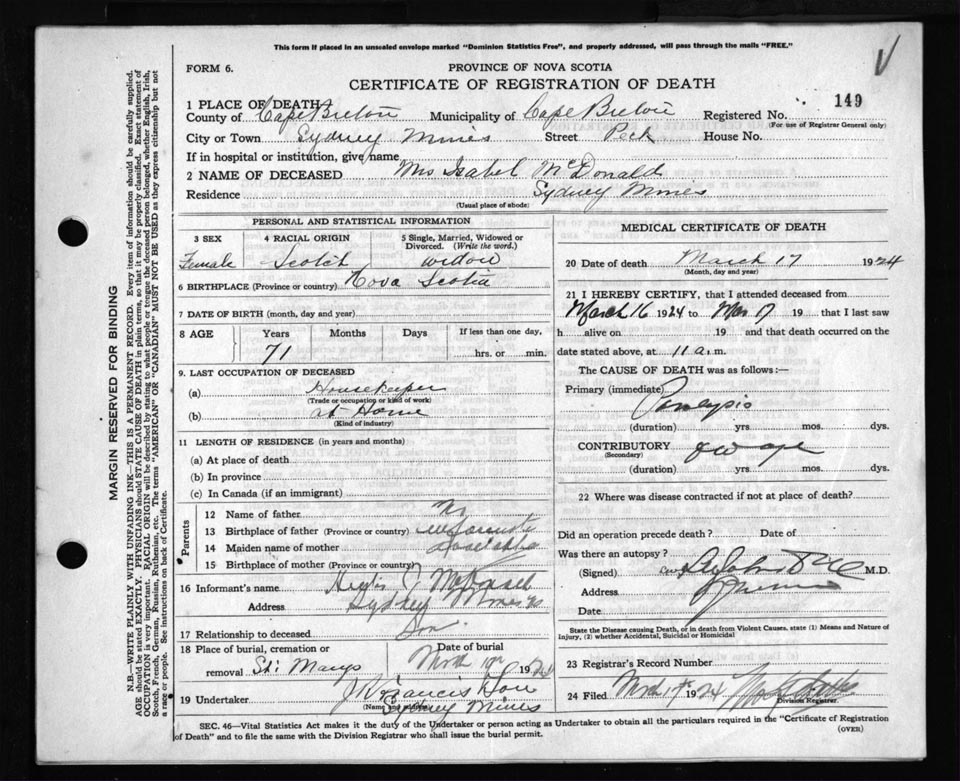 This form if placed in an unsealed envelope marked "Dominion Statistics Free", and properly addressed, will pass through the mails "FREE."
FORM 6.
PROVINCE OF NOVA SCOTIA
CERTIFICATE OF REGISTRATION OF DEATH
149
1 PLACE OF DEATH
County of Cape Breton Municipality of Cape Breton Registered No.
(For use of Registrar General only)
City or Town Sydney Mines Street Peck House No.
If in hospital or institution, give name
2 NAME OF DECEASED Mrs Isabel McDonald
Residence Sydney Mines
(Usual place of abode)
PERSONAL AND STATISTICAL INFORMATION
3 SEX 4 RACIAL ORIGIN 5 Single, Married, Widowed or Divorced. (Write the word.)
Female Scotch widow
6 BIRTHPLACE (Province or country) Nova Scotia
7 DATE OF BIRTH (month, day and year)
8 AGE Years Months Days If less than one day,
71 hrs. or min.
9. LAST OCCUPATION OF DECEASED
(a) Housekeeper
(Trade or occupation or kind of work)
(b) at Home
(Kind of industry)
11 LENGTH OF RESIDENCE (in years and months)
(a) At place of death
(b) In province
(c) In Canada (if an immigrant)
Parents
12 Name of father
13 Birthplace of father (Province or country)
14 Maiden name of mother
15 Birthplace of mother (Province or country)
16 Informant's name
Address Sydney Mines
17 Relationship to deceased Son
18 Place of burial, cremation or removal St. Marys Date of burial 1924
19 Undertaker Francis
(Name
Sydney Mines
MEDICAL CERTIFICATE OF DEATH
20 Date of death March 17 1924
(Month, day and year)
21 I HEREBY CERTIFY, that I attended deceased from
March 16 1924 to Mar 17 19 that I last saw
h alive on 19 and that death occurred on
date stated above, at 11 a.m.
The CAUSE OF DEATH was as follows:—
Primary (immediate) Paralysis
(duration) yrs. mos. dys.
CONTRIBUTORY old age
(Secondary)
(duration) yrs. mos. dys.
22 Where was disease contracted if not at place of death?
Did an operation precede death? Date of
Was there an autopsy?
(Signed) M.D.
Address
Date
State the Disease causing Death, or in death from Violent Causes, state (1) Means and Nature of
Injury, (2) whether Accidental, Suicidal or Homicidal
23 Registrar's Record Number
24 Filed 1924
Division Registrar.
SEC. 46—Vital Statistics Act makes it the duty of the Undertaker or person acting as Undertaker to obtain all the particulars required in the "Certificate of Registration
of Death" and to file the same with the Division Registrar who shall issue the burial permit.
(OVER)
MARGIN RESERVED FOR BINDING
N.B.—WRITE PLAINLY WITH UNFADING INK—THIS IS A PERMANENT RECORD. Every item of information should be carefully supplied.
AGE should be stated EXACTLY. PHYSICIANS should STATE CAUSE OF DEATH in plain terms, so that it may be properly classified. Exact statement of
OCCUPATION is very important. RACIAL ORIGIN will be described by stating to what people or tongue the deceased person belonged, whether English, Irish,
Scotch, French, German, Russian, Ruthenian, etc. The terms "AMERICAN" or "CANADIAN" MUST NOT BE USED as they express citizenship but not
a race or people. See instructions on back of Certificate.